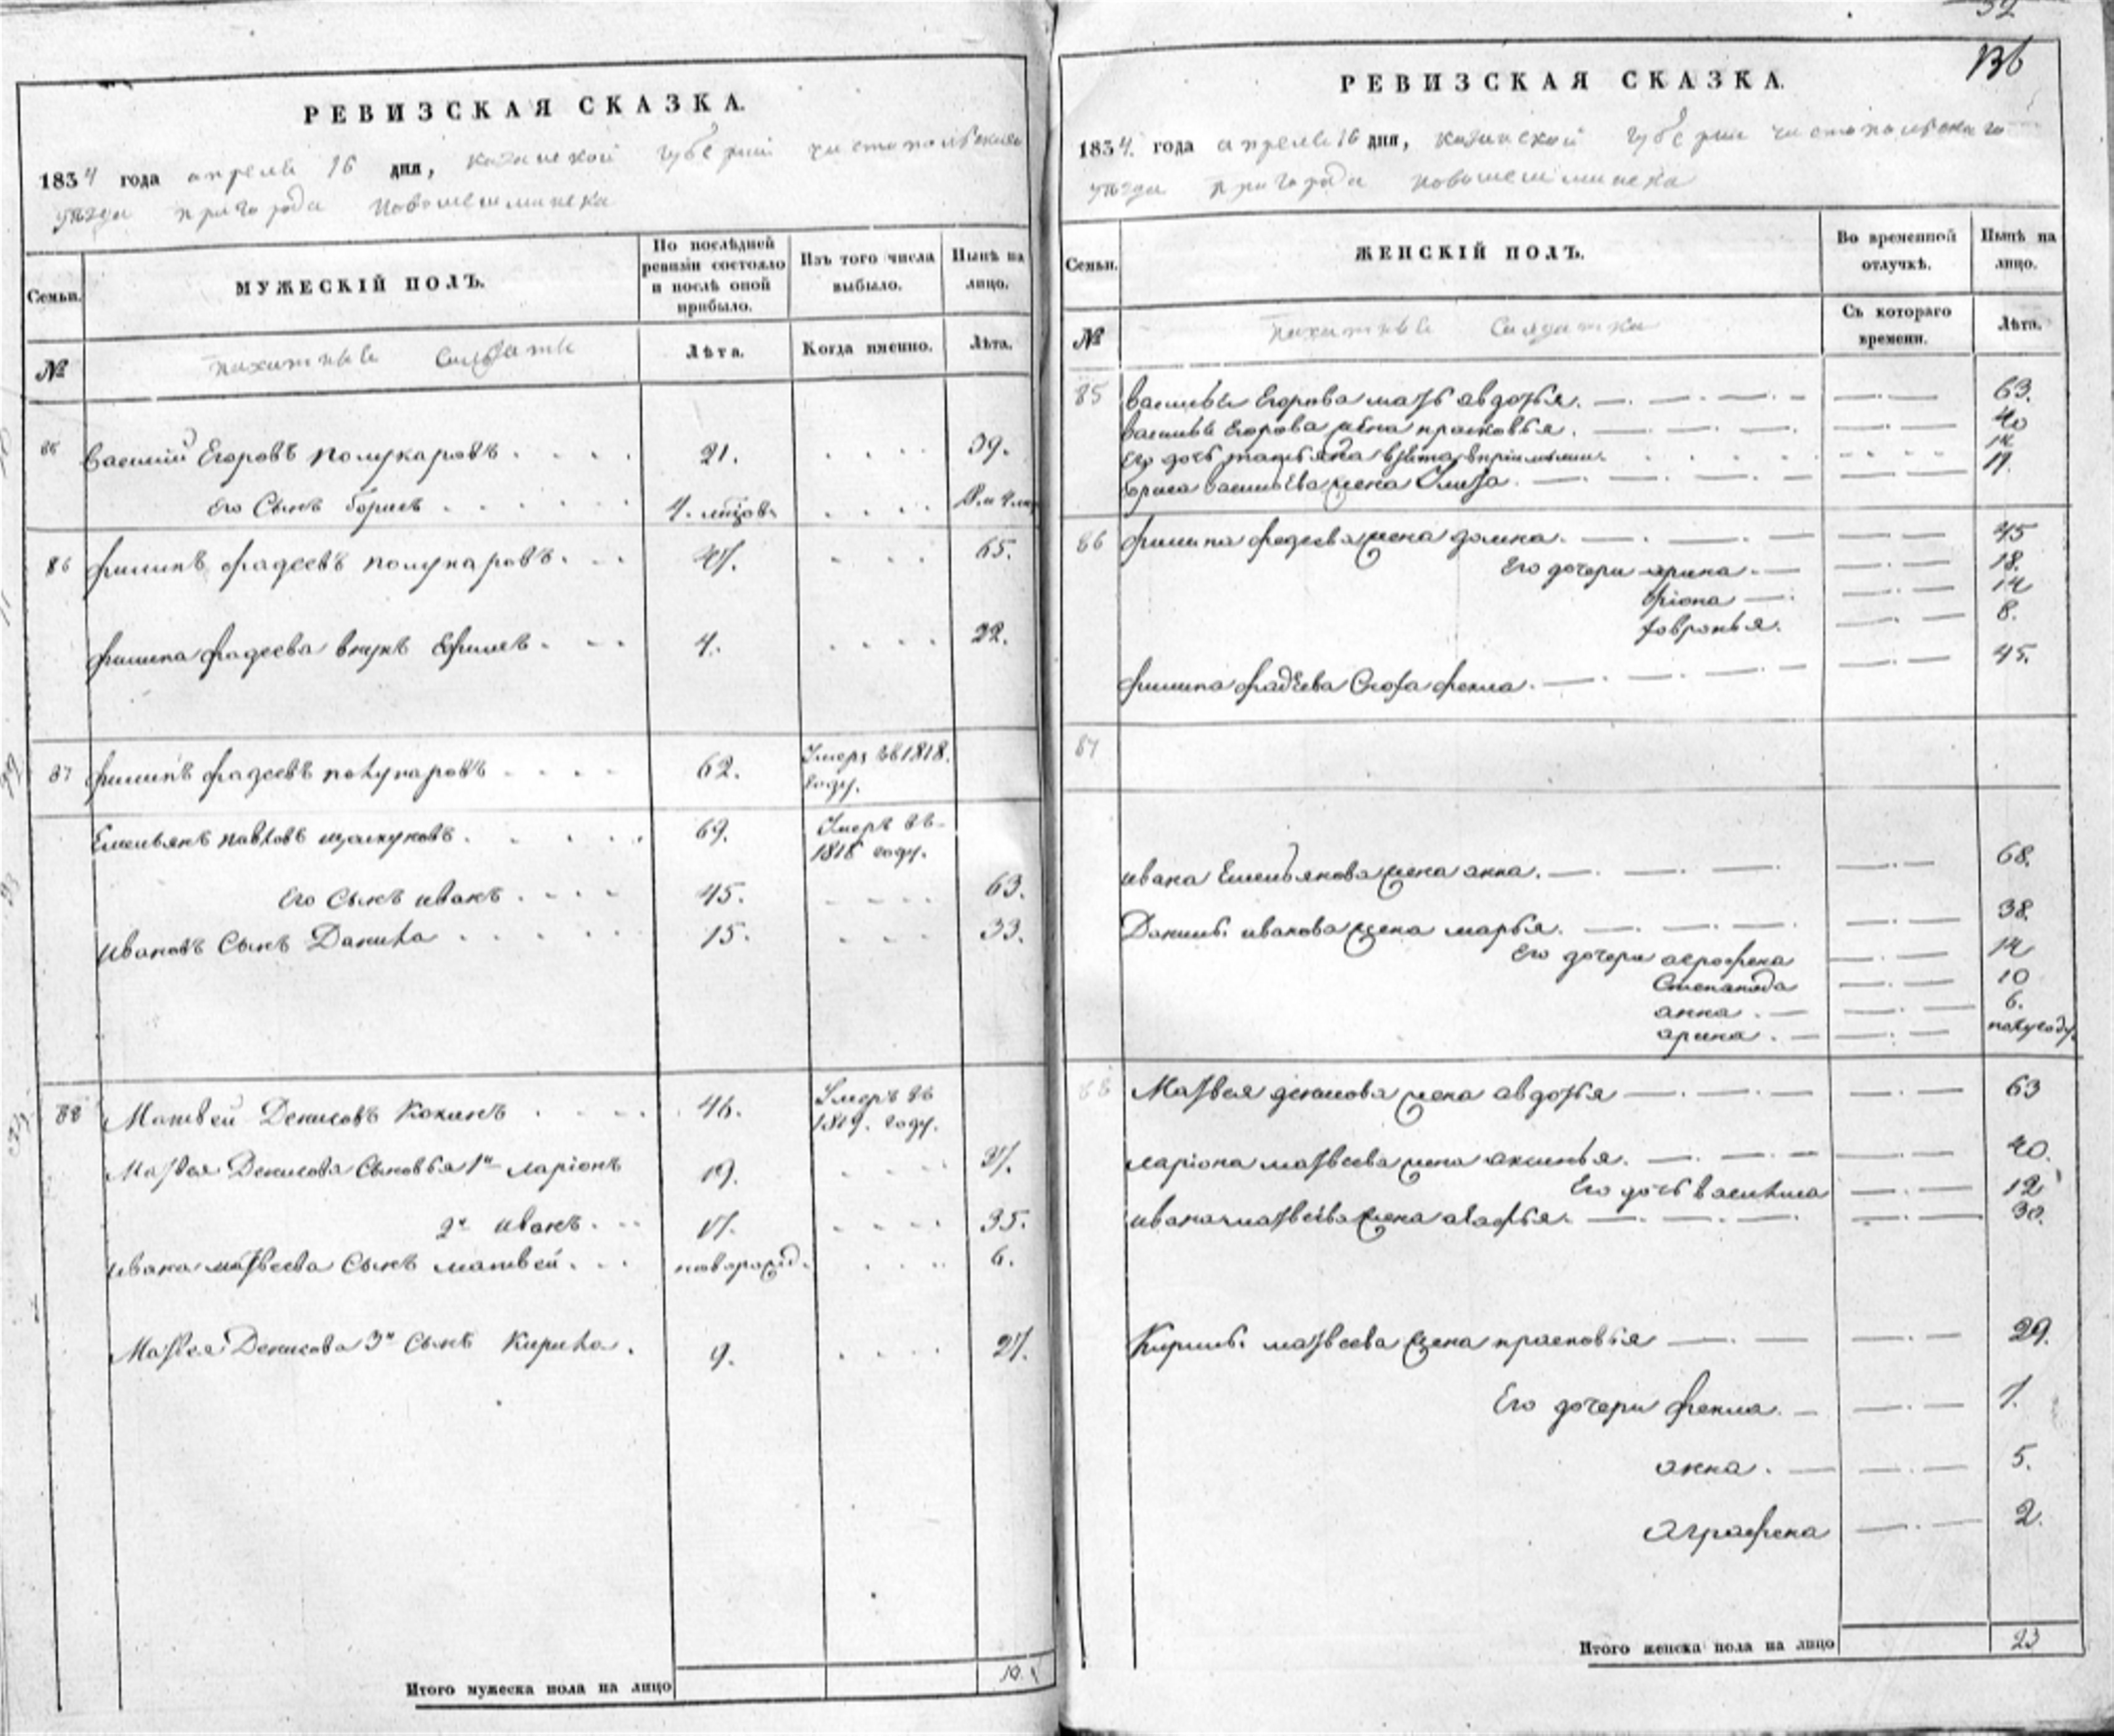 РЕВИЗСКАЯ СКАЗКА.
1834 года апреля 16 дня, казанской губернии чистопольскаго
уезда пригорода новошешминска
Семьи.
МУЖЕСКІЙ ПОЛЪ.
По послѣдней ревизіи состояло и послѣ оной прибыло.
Изъ того числа выбыло.
Нынѣ на лицо.
№
пахатные солдаты
Лѣта.
Когда именно.
Лѣта.
85 василий Егоровъ полукаровъ 21. 39.
Его Сынъ борисъ
86 филипъ фадеевъ полукаровъ 47. 65.
филипа фадеева внукъ Ефимъ 4. 22.
87 филипъ фадеевъ полукаровъ 62. Умеръ въ 1818. году.
Емельянъ павловъ 69. Умеръ въ 1818 году.
Его Сынъ иванъ 45. 63.
ивановъ Сынъ Данила 15. 33.
88 Матвей Денисовъ Кокинъ 46. Умеръ въ 1819. году.
Матвея Денисова Сыновья 1й ларіонъ 19. 37.
2й иванъ 17. 35.
ивана матвеева Сынъ матвей 6.
Матвея Денисова 3й Сынъ Кирила 9. 27.
Итого мужеска пола на лицо 10.
136
РЕВИЗСКАЯ СКАЗКА.
1834. года апреля 16 дня, казанской губернии чистопольскаго
уезда пригорода новошешминска
Семьи.
ЖЕНСКІЙ ПОЛЪ.
Во временной отлучкѣ.
Нынѣ на лицо.
№
пахатные Салдатки
Съ котораго времени.
Лѣта.
85 василья Егорова мать авдотья. 63.
василья Егорова жена прасковья. 40
Его дочь татьяна 14
бориса васильева жена 19.
86 филипа фадеева жена домна. 45
Его дочери арина 18.
14
февронья. 8.
филипа фадеева Сноха фекла. 45.
87
ивана Емельянова жена анна. 68.
Данилы ивановa жена марья. 38.
Его дочери агрофена 14
Степанида 10
анна 6.
арина полугоду.
88 Матвея денисова жена авдотья 63
лариона матвеева жена аксинья. 40.
Его дочь василиса 12
ивана матвеева жена агафья. 30.
Кирилы матвеева жена прасковья 29.
Его дочери фекла 7.
анна 5.
Аграфена 2.
Итого женска пола на лицо 23